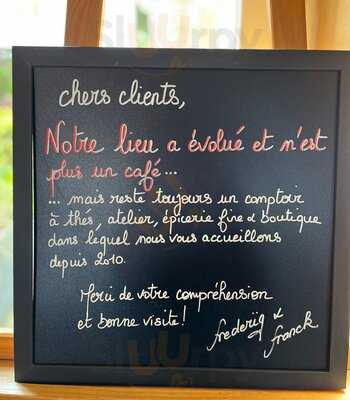 chers clients,
Notre lieu a évolué et n'est
plus un café...
... mais reste toujours un comptoir
à thés, atelier, épicerie fine & boutique
dans lequel nous vous accueillons
depuis 2010.
Merci de votre compréhension
et bonne visite!
frederiq &
franck
sluurpy